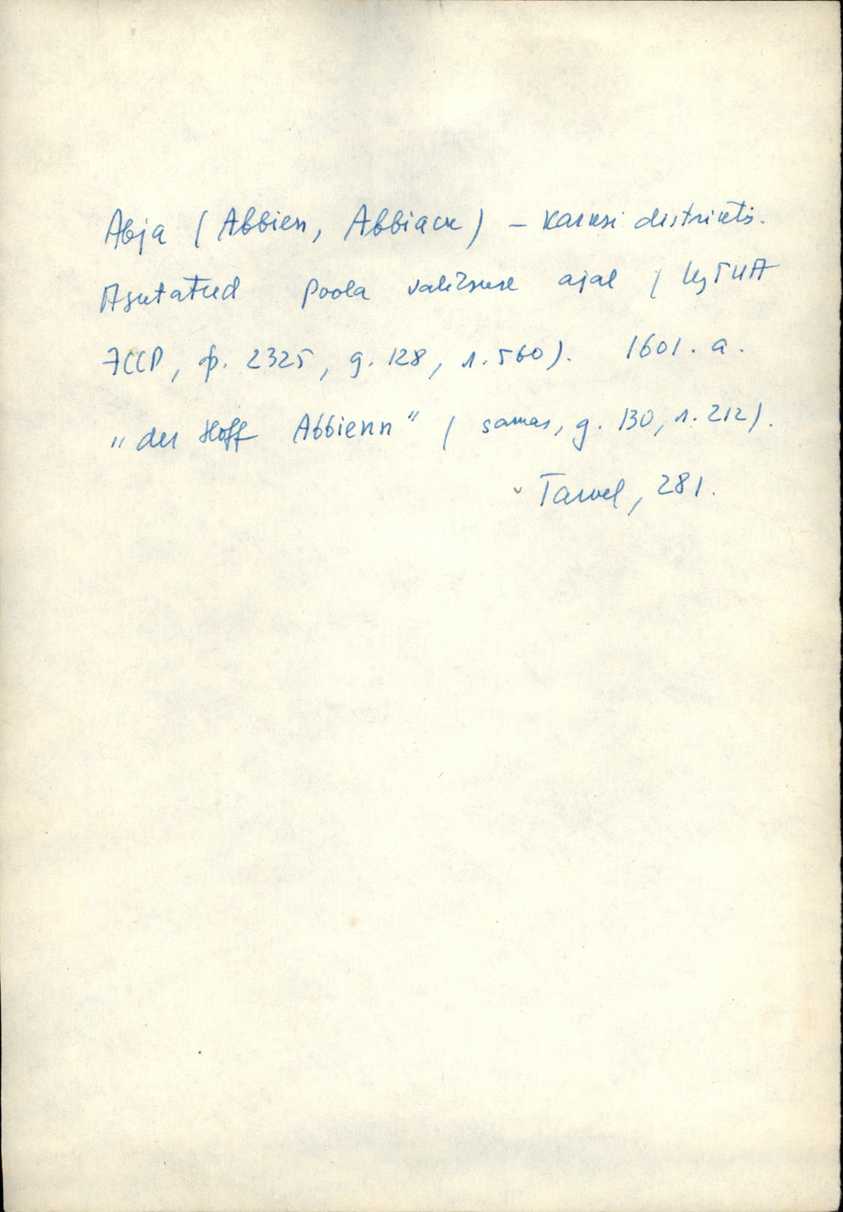 Abja (Abbien, Abbiacu) – Karksi distrikts.
Asutatud Poola valitsuse ajal (ЦГИА
ЭССР, ф. 2325, g. 128, л. 560). 1601. a.
„der Hoff Abbienn" (samas, g. 130, л. 212).
Tarvel, 281.